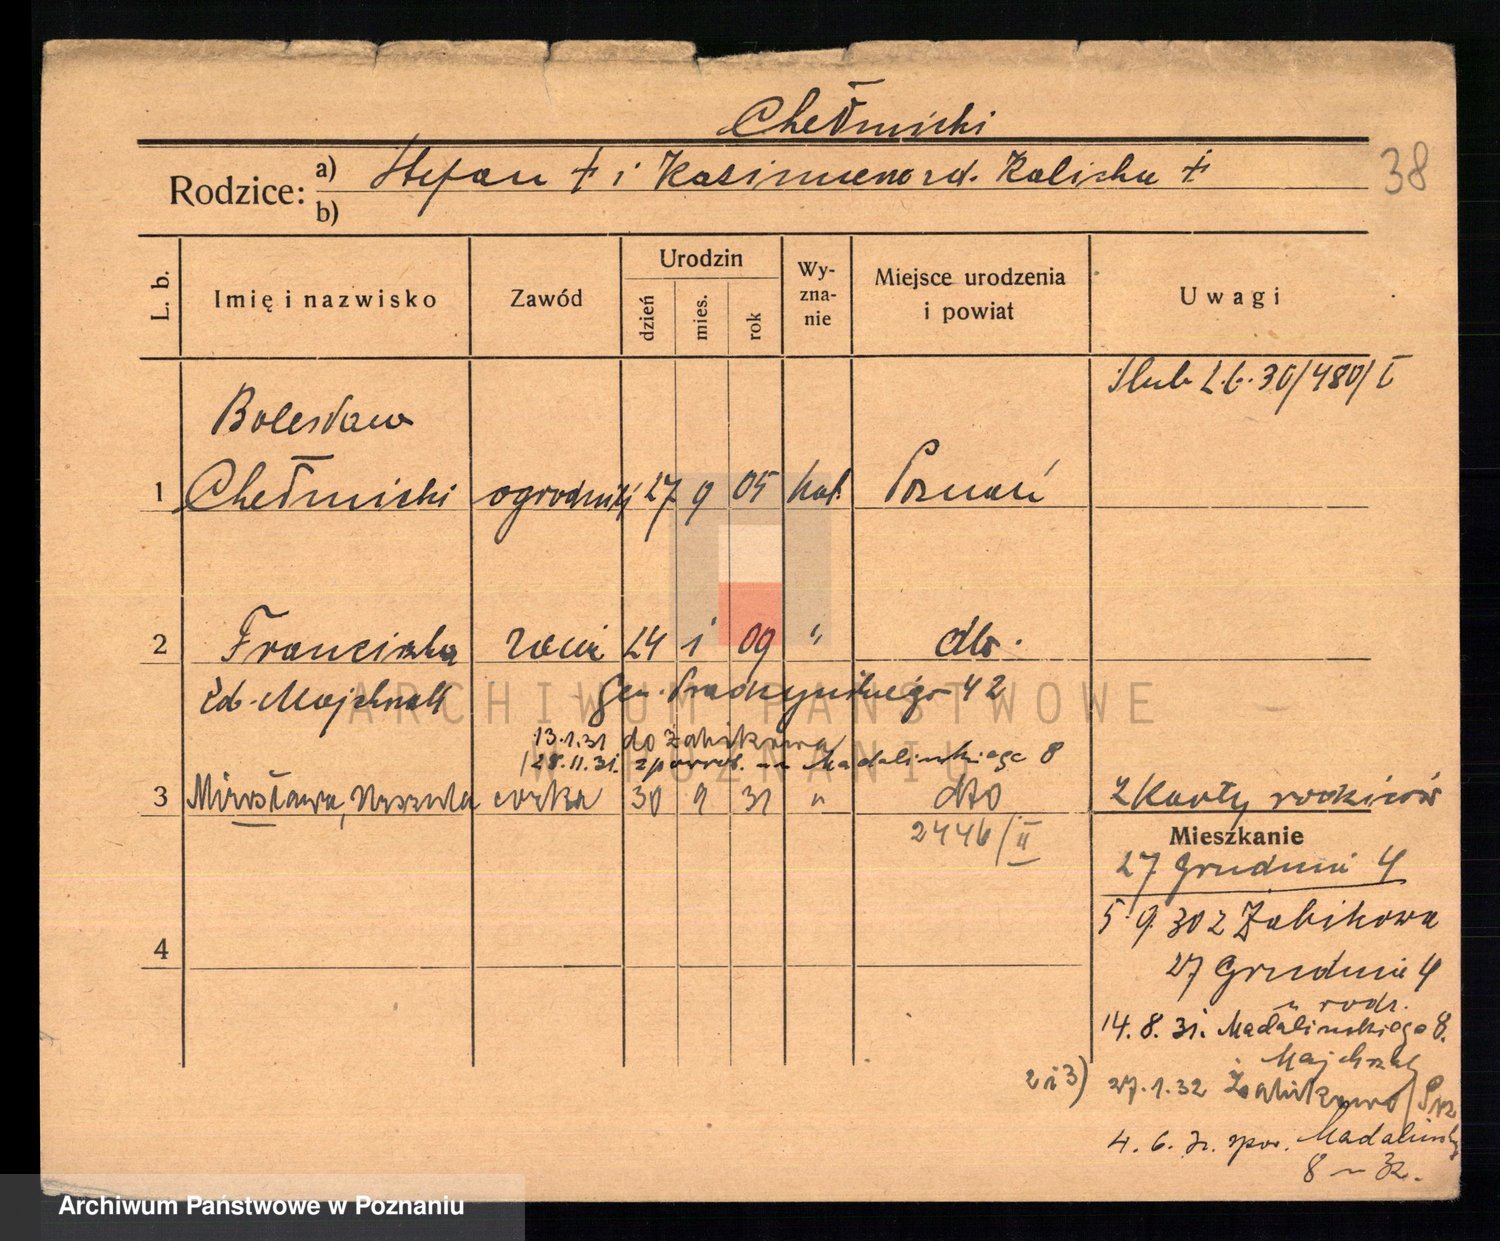 Chełmicki
38
Rodzice: a) Stefan † i Kazimiera rd. Kaliska †
b)
L. b. Imię i nazwisko Zawód Urodzin dzień mies. rok Wyznanie Miejsce urodzenia i powiat Uwagi
Ślub L.b. 30/480/I
Bolesław
1 Chełmicki ogrodnik 27 9 05 kat. Poznań
2 Franciszka 24 1 09 " dto.
Majchrzak Gen. Prądzyńskiego 42
13.1.31 do Żabikowa
28.11.31. z powrot. Madalińskiego 8
3 Mirosława, Urszula córka 30 9 31 " dto z Karty rodziców
2446/II
Mieszkanie
27 Grudnia 4
5.9.30 z Żabikowa
27 Grudnia 4
u rodz.
4
14.8.31. Madalińskiego 8.
Majchrzak
2 i 3) 27.1.32 Żabikowo
4.6. Madalińsk
8 32.
ARCHIWUM PAŃSTWOWE
W POZNANIU
Archiwum Państwowe w Poznaniu